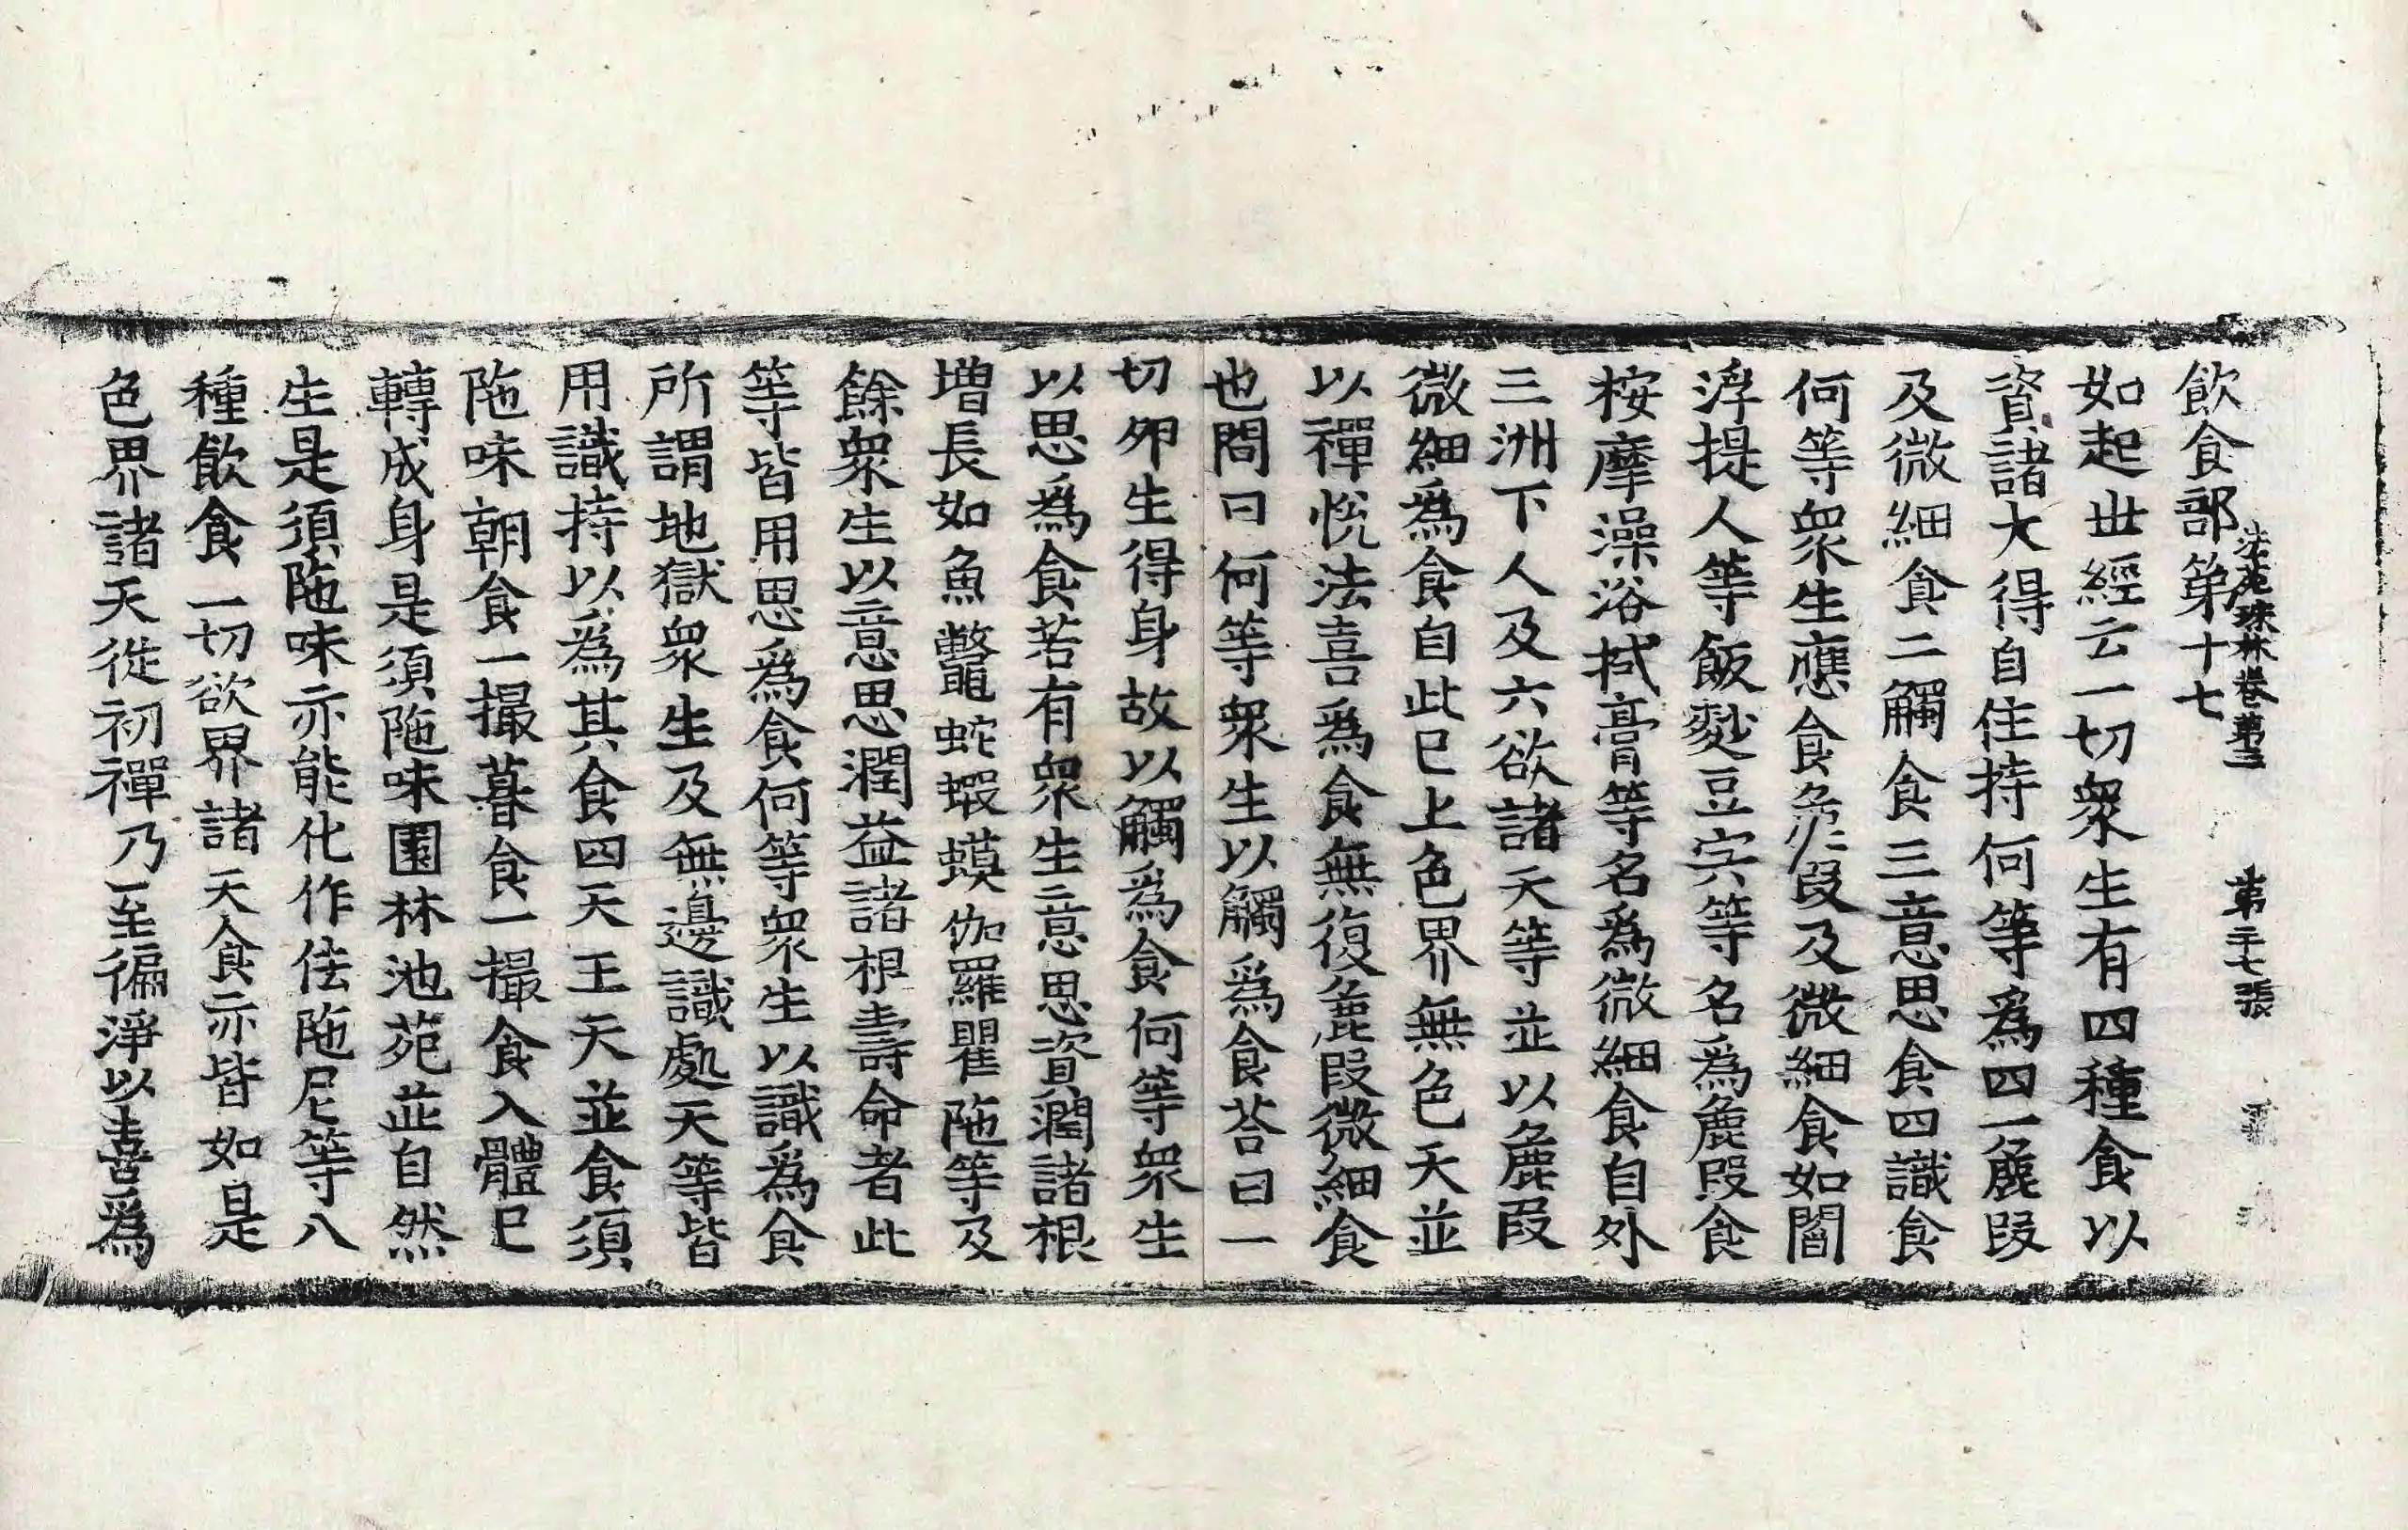 飲食部第十七
法苑珠林卷第三　第二十七張
如起世經云一切衆生有四種食以
資諸大得自住持何等爲四一麁段
及微細食二觸食三意思食四識食
何等衆生應食麁段及微細食如閻
浮提人等飯麨豆宍等名爲麁段食
桉摩澡浴拭膏等名爲微細食自外
三洲下人及六欲諸天等並以麁段
微細爲食自此已上色界無色天並
以禪悅法喜爲食無復麁段微細食
也問曰何等衆生以觸爲食荅曰一
切卵生得身故以觸爲食何等衆生
以思爲食若有衆生意思資潤諸根
増長如魚鼈蛇蝦蟆伽羅瞿陁等及
餘衆生以意思潤益諸根壽命者此
等皆用思爲食何等衆生以識爲食
所謂地獄衆生及無邊識處天等皆
用識持以爲其食四天王天並食須
陁味朝食一撮暮食一撮食入體已
轉成身是須陁味園林池苑並自然
生是須陁味亦能化作佉陁尼等八
種飲食一切欲界諸天食亦皆如是
色界諸天從初禪乃至徧淨以喜爲